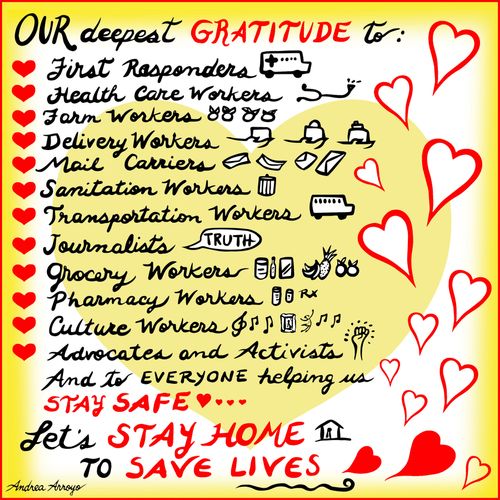 OUR deepest GRATITUDE to:
First Responders
Health Care Workers
Farm Workers
Delivery Workers
Mail Carriers
Sanitation Workers
Transportation Workers
Journalists TRUTH
Grocery Workers
Pharmacy Workers RX
Culture Workers
Advocates and Activists
And to EVERYONE helping us
STAY SAFE ...
Let's STAY HOME
TO SAVE LIVES
Andrea Arroyo